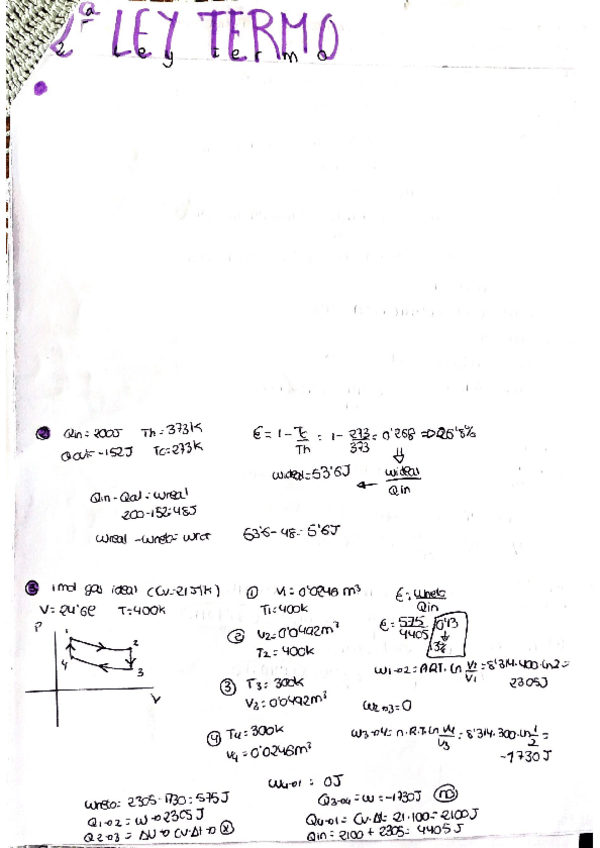 2ª LEY TERMO
2 Ley termo
Qin = 200J Th = 373K
Qout = -152J Tc = 273K
ε = 1 - Tc/Th = 1 - 273/373 = 0'268 => 26'8%
Wideal/Qin
Wideal = 53'6J
Qin - Qout = Wreal
200 - 152 = 48J
53'6 - 48 = 5'6J
1mol gas ideal (Cv = 21J/K)
V = 24'6l T = 400K
① V1 = 0'0246 m³
T1 = 400K
② V2 = 0'0492 m³
T2 = 400K
③ T3 = 300K
V3 = 0'0492 m³
④ T4 = 300K
V4 = 0'0246 m³
P
1
2
4
3
V
ε = Wneto/Qin
ε = 575/4405 = 0'13
13%
W1→2 = n.R.T. Ln V2/V1 = 8'314.400.ln2 =
2305J
W2→3 = 0
W3→4 = n.R.T.Ln V4/V3 = 8'314.300.Ln 1/2 =
-1730J
W4→1 = 0J
Wneto = 2305 - 1730 = 575J
Q1→2 = W → 2305J
Q3→4 = W = -1730J
Q4→1 = Cv.Δt = 21.100 = 2100J
Qin = 2100 + 2305 = 4405J